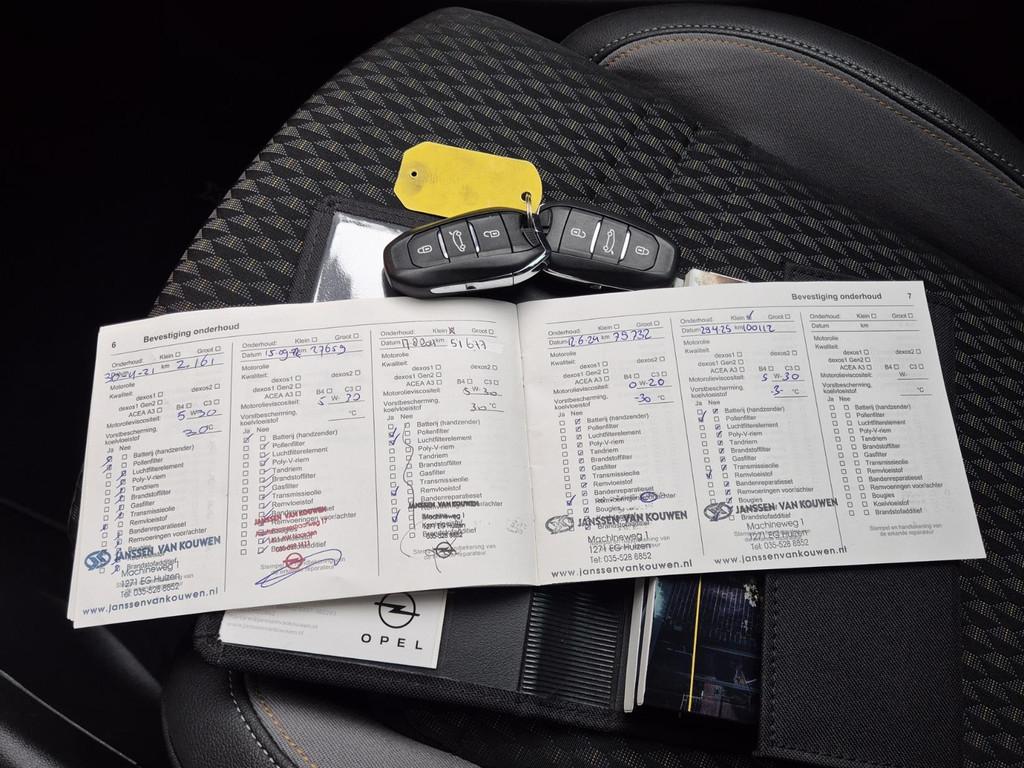 6 Bevestiging onderhoud
Onderhoud: Klein Groot
km 2.161
Motorolie
Kwaliteit:
dexos1 dexos2
dexos1 Gen2
ACEA A3 B4 C3
Motorolieviscositeit:
5 W 30
Vorstbescherming,
koelvloeistof
30 °C
Ja Nee
Batterij (handzender)
Pollenfilter
Luchtfilterelement
Poly-V-riem
Tandriem
Brandstoffilter
Gasfilter
Transmissieolie
Remvloeistof
Bandenreparatieset
Remvoeringen voor/achter
JANSSEN VAN KOUWEN
Brandstofadditief
Machineweg 1
1271 EG Huizen
Tel: 035-528 6852
www.janssenvankouwen.nl
Onderhoud: Klein Groot
Datum km 27659
Motorolie
Kwaliteit:
dexos1 dexos2
dexos1 Gen2
ACEA A3 B4 C3
Motorolieviscositeit:
W
Vorstbescherming,
koelvloeistof °C
Ja Nee
Batterij (handzender)
Pollenfilter
Luchtfilterelement
Poly-V-riem
Tandriem
Brandstoffilter
Gasfilter
Transmissieolie
Remvloeistof
Bandenreparatieset
Remvoeringen voor/achter
JANSSEN VAN KOUWEN
Onderhoud: Klein Groot
Datum 51677
Motorolie
Kwaliteit:
dexos1 dexos2
dexos1 Gen2
ACEA A3 B4 C3
Motorolieviscositeit:
5 W 30
Vorstbescherming,
koelvloeistof
30 °C
Ja Nee
Batterij (handzender)
Pollenfilter
Luchtfilterelement
Poly-V-riem
Tandriem
Brandstoffilter
Gasfilter
Transmissieolie
Remvloeistof
Bandenreparatieset
JANSSEN VAN KOUWEN
Machineweg 1
1271 EG Huizen
035-528 6852
Bevestiging onderhoud 7
Onderhoud: Klein Groot
Datum 12.6.24 km 75732
Motorolie
Kwaliteit:
dexos1 dexos2
dexos1 Gen2
ACEA A3 B4 C3
Motorolieviscositeit:
0 W-20
Vorstbescherming,
koelvloeistof -30 °C
Ja Nee
Batterij (handzender)
Pollenfilter
Luchtfilterelement
Poly-V-riem
Tandriem
Brandstoffilter
Gasfilter
Transmissieolie
Remvloeistof
Bandenreparatieset
Remvoeringen voor/achter
Bougies
JANSSEN VAN KOUWEN
Machineweg 1
1271 EG Huizen
Tel: 035-528 6852
www.janssenvankouwen.nl
Onderhoud: Klein Groot
Datum 29.4.25 km 100112
Motorolie
Kwaliteit:
dexos1 dexos2
dexos1 Gen2
ACEA A3 B4 C3
Motorolieviscositeit: 5 W-30
Vorstbescherming,
koelvloeistof °C
Ja Nee
Batterij (handzender)
Pollenfilter
Luchtfilterelement
Poly-V-riem
Tandriem
Brandstoffilter
Gasfilter
Transmissieolie
Remvloeistof
Bandenreparatieset
Remvoeringen voor/achter
Bougies
JANSSEN VAN KOUWEN
Machineweg 1
1271 EG Huizen
Tel: 035-528 6852
www.janssenvankouwen.nl
Onderhoud: Klein Groot
Datum km
Motorolie
Kwaliteit:
dexos1 dexos2
dexos1 Gen2
ACEA A3 B4 C3
Motorolieviscositeit: W-
Vorstbescherming,
koelvloeistof °C
Ja Nee
Batterij (handzender)
Pollenfilter
Luchtfilterelement
Poly-V-riem
Tandriem
Brandstoffilter
Gasfilter
Transmissieolie
Remvloeistof
Bandenreparatieset
Remvoeringen voor/achter
Bougies
Koelvloeistof
Brandstofadditief
Stempel en handtekening van
de erkende reparateur
www.janssenvankouwen.nl
OPEL